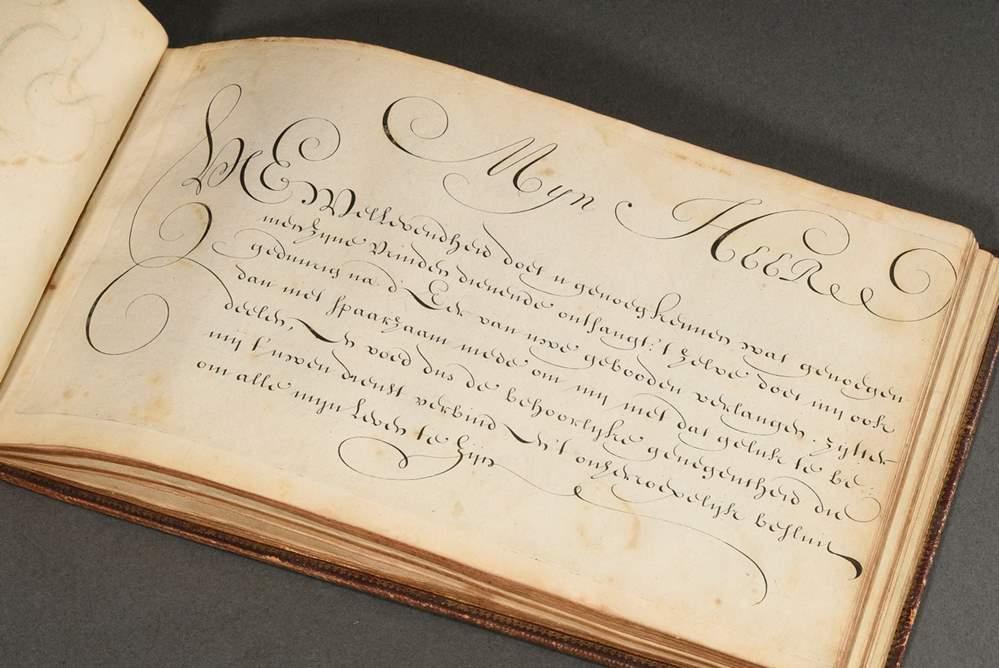 Myn HEER
UE Wellevendheid doet u genoeg kennen wat genoegen
men zyne Vrinden dienende ontfangt: 't zelve doet my ook
geduurig na d' Eer van uwe gebooden verlangen. zyt er
dan niet spaarzaam mede om my met dat geluk te be:
deelen, En voed dus de behoorlyke genegentheid die
my t' uwen dienst verbind En 't onherroepelyk besluit
om alle myn Leven te Zyn